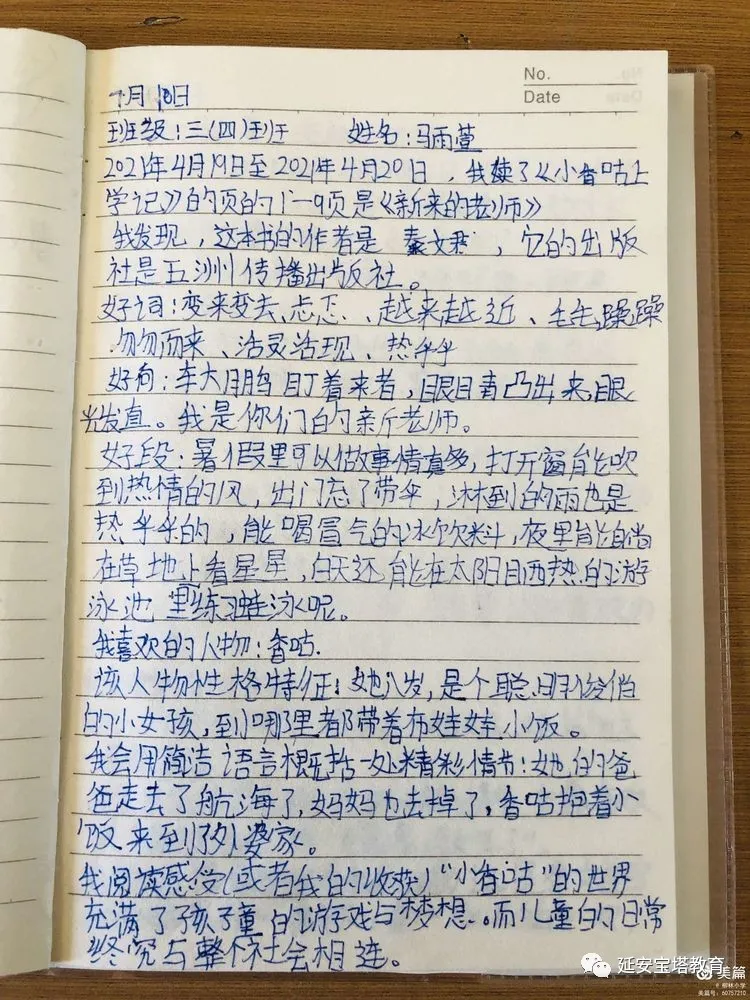 No.
Date
4月10日
班级:三(四)班 姓名:马雨萱
2021年4月19日至2021年4月20日,我读了《小香咕上
学记》的页的1-9页是《新来的老师》
我发现,这本书的作者是 秦文君 ,它的出版
社是五洲传播出版社。
好词:变来变去、忐忑、越来越近、毛毛躁躁
匆匆而来、活灵活现、热乎乎
好句:李大鹏盯着来者,眼睛凸出来,眼
光发直。我是你们的新老师。
好段:暑假里可以做事情真多,打开窗能吹
到热情的风,出门忘了带伞,淋到的雨也是
热乎乎的,能喝冒气的冰饮料,夜里能躺
在草地上看星星,白天还能在太阳晒热的游
泳池里练习蛙泳呢。
我喜欢的人物:香咕.
该人物性格特征:她八岁,是个聪明俊俏
的小女孩,到哪里都带着布娃娃小饭。
我会用简洁语言概括一处精彩情节:她的爸
爸走去了航海了,妈妈也去掉了,香咕抱着小
饭来到了外婆家。
我阅读感受(或者我的收获)“小香咕”的世界
充满了孩子童的游戏与梦想。而儿童的日常
终究与整个社会相连。
延安宝塔教育
美篇
柳林小学
美篇号:60757210